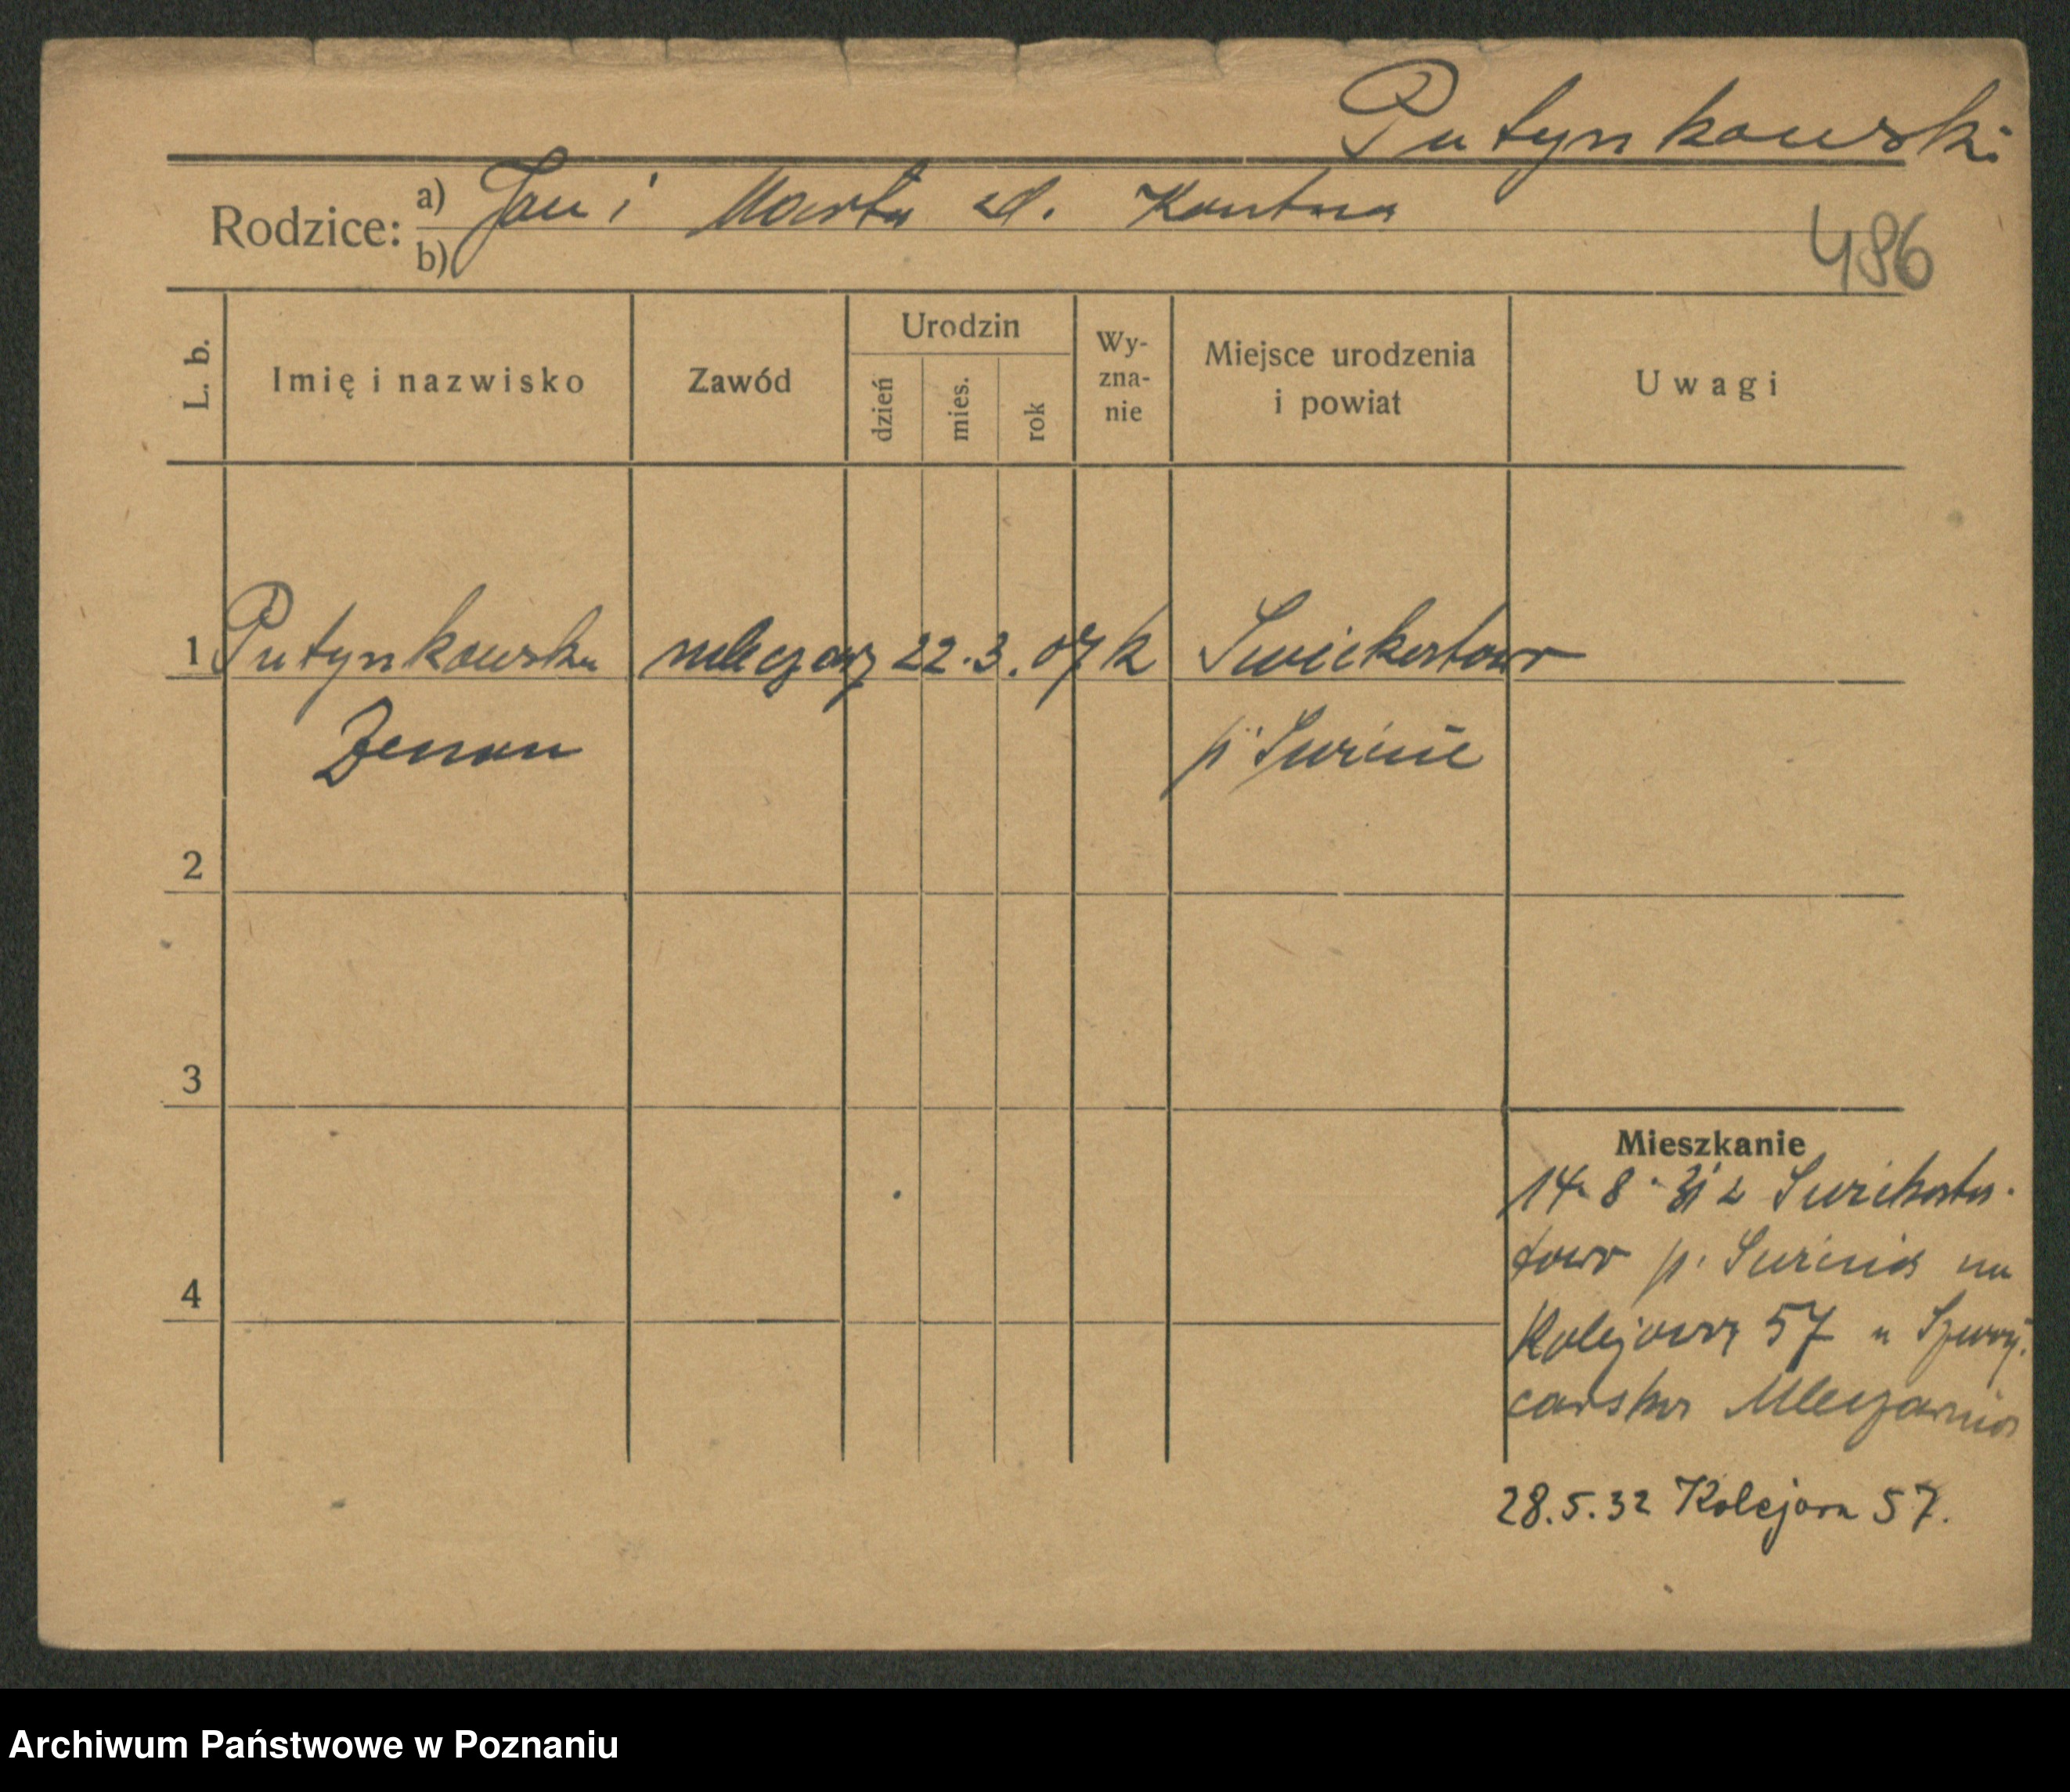 Putynkowski
Rodzice:
a) Jan i Marta zd. Kantna
b)
486
L. b.
Imię i nazwisko
Zawód
Urodzin
dzień
mies.
rok
Wy-
zna-
nie
Miejsce urodzenia
i powiat
Uwagi
1 Putynkowski mleczarz 22. 3. 07 k
Zenon
2
3
4
Mieszkanie
14. 8. 31 z
towo p. na
Kolejową 57 u Szwaj.
carska Mleczarnia
28.5.32 Kolejowa 57.
Archiwum Państwowe w Poznaniu